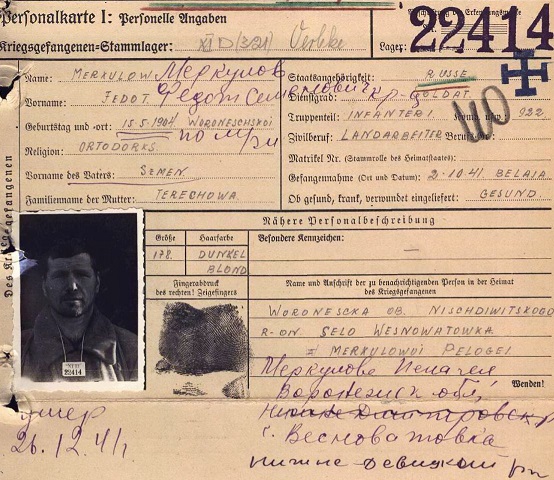 Personalkarte I: Personelle Angaben
Kriegsgefangenen-Stammlager: XI D (321) Oerbke
Lager:
22414
Des Kriegsgefangenen
Name: MERKULOW Меркулов
Vorname: FEDOT Федот Семенович
Geburtstag und -ort: 15.5.1904 WORONESCHSKOI
Religion: ORTODORKS.
Vorname des Vaters: SEMEN
Familienname der Mutter: TERECHOWA
Staatsangehörigkeit: RUSSE
Dienstgrad: SOLDAT кр-ц
Truppenteil: INFANTERI. Komp. usw.: 932.
Zivilberuf: LANDARBEITER Berufs-Gr.:
Matrikel Nr. (Stammrolle des Heimatstaates):
Gefangennahme (Ort und Datum): 2-10.41 BELAIA
Ob gesund, krank, verwundet eingeliefert: GESUND.
Nähere Personalbeschreibung
Größe
Haarfarbe
Besondere Kennzeichen:
178.
DUNKEL
BLOND
—
Fingerabdruck
des rechten! Zeigefingers
Name und Anschrift der zu benachrichtigenden Person in der Heimat
des Kriegsgefangenen
WORONESCKA OB. NISCHDIWITSKOGO
R-ON SELO WESNOWATOWKA
= MERKULOWOI PELOGEI
22414
Меркулове Пелагея
Wenden!
Воронежск обл,
с. Весноватовка
Нижне-Девицкой р-н
умер
26.12.41г